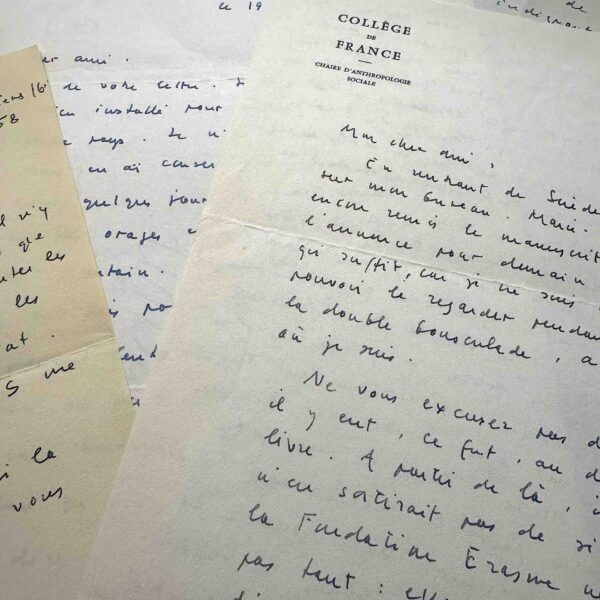 COLLÈGE
DE
FRANCE
CHAIRE D'ANTHROPOLOGIE
SOCIALE
Mon cher ami,
En rentrant de Suède
sur mon bureau. Merci
encore remis le manuscrit
l'annonce pour demain
qui suffit, car je ne suis
pouvoir le regarder pendant
la double bousculade, a
où je suis.
Ne vous excusez pas d
il y eut, ce fut, au d
livre. A partir de là,
n'en sortirait pas de si
la Fondation Erasme
pas tant : elle
ce 19
er ami.
de votre lettre.
en installé pour
pays. Je
en ai
quelques jour
orages
tain.
58
il n'y
que
les
les
at.
S me
i la
vous
de